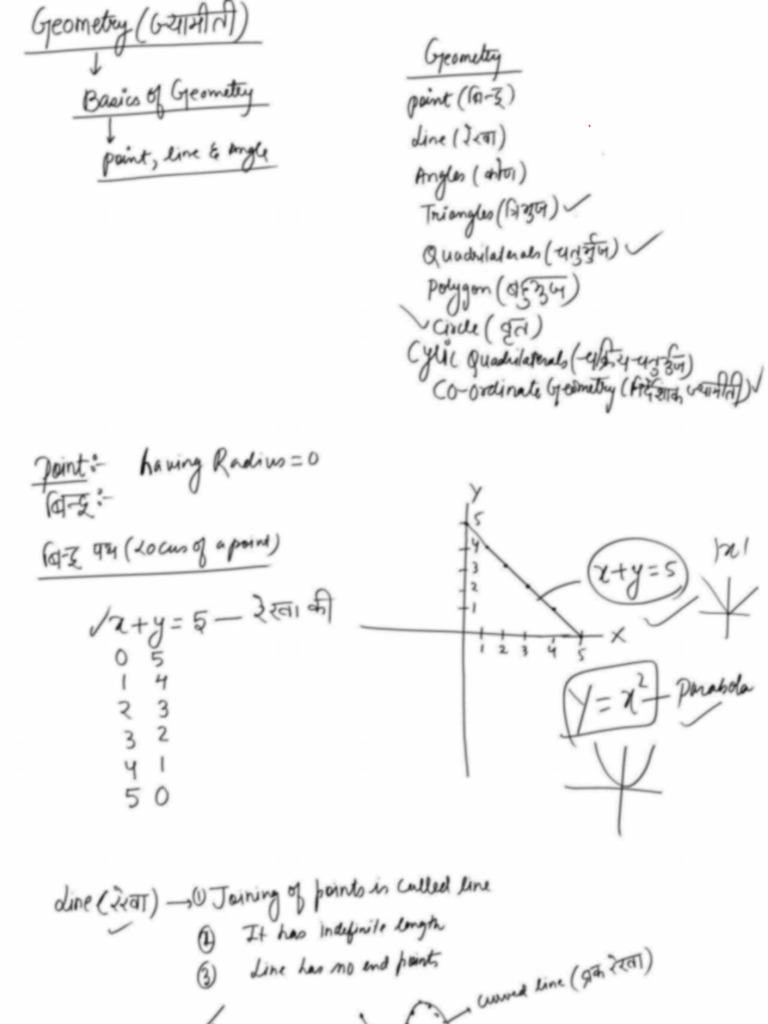 Geometry (ज्यामीती)
Basics of Geometry
point, line & Angle
Geometry
point (बिन्दू)
Line (रेखा)
Angles (कोण)
Triangles (त्रिभुज)
Quadrilaterals (चतुर्भुज)
Polygon (बहुभुज)
Circle (वृत)
Cylic Quadrilaterals (चक्रिय चतुर्भुज)
Co-ordinate Geometry (निर्देशांक ज्यामीती)
Point:- having Radius = 0
बिन्दू:-
बिन्दू पथ (Locus of a point)
x+y = 5 — रेखा की
0 5
1 4
2 3
3 2
4 1
5 0
Y
5
4
3
2
1
1 2 3 4 5 X
x+y=5
|x|
Y = x² — Parabola
Line (रेखा) → ① Joining of points is called line
② It has indefinite length
③ Line has no end points
curved line (वक्र रेखा)